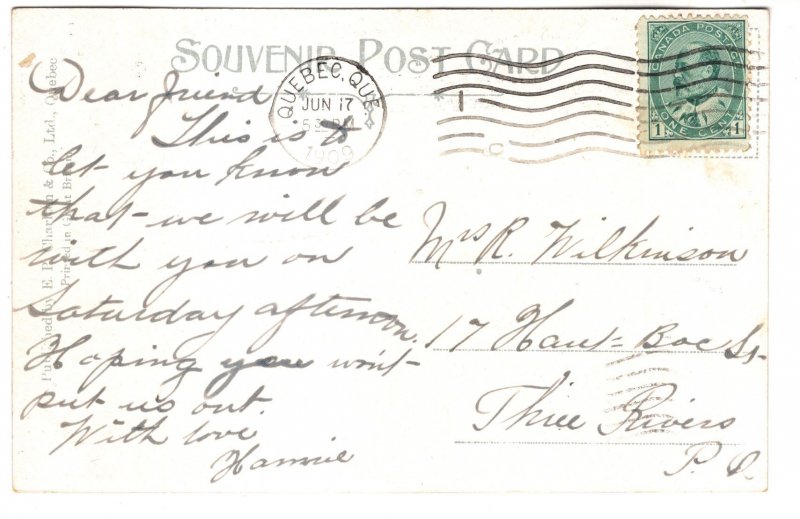 SOUVENIR POST CARD
QUEBEC, QUE
JUN 17
1909
CANADA POSTAGE
1 ONE CENT 1
Dear friend
This is to
let you know
that we will be
with you on
Saturday afternoon.
Hoping you won't
put us out.
With love
Mrs R. Wilkinson
17 Haut-Boc St
Three Rivers
P. Q.
Published by E. & Co., Ltd., Quebec
Printed in Great Britain